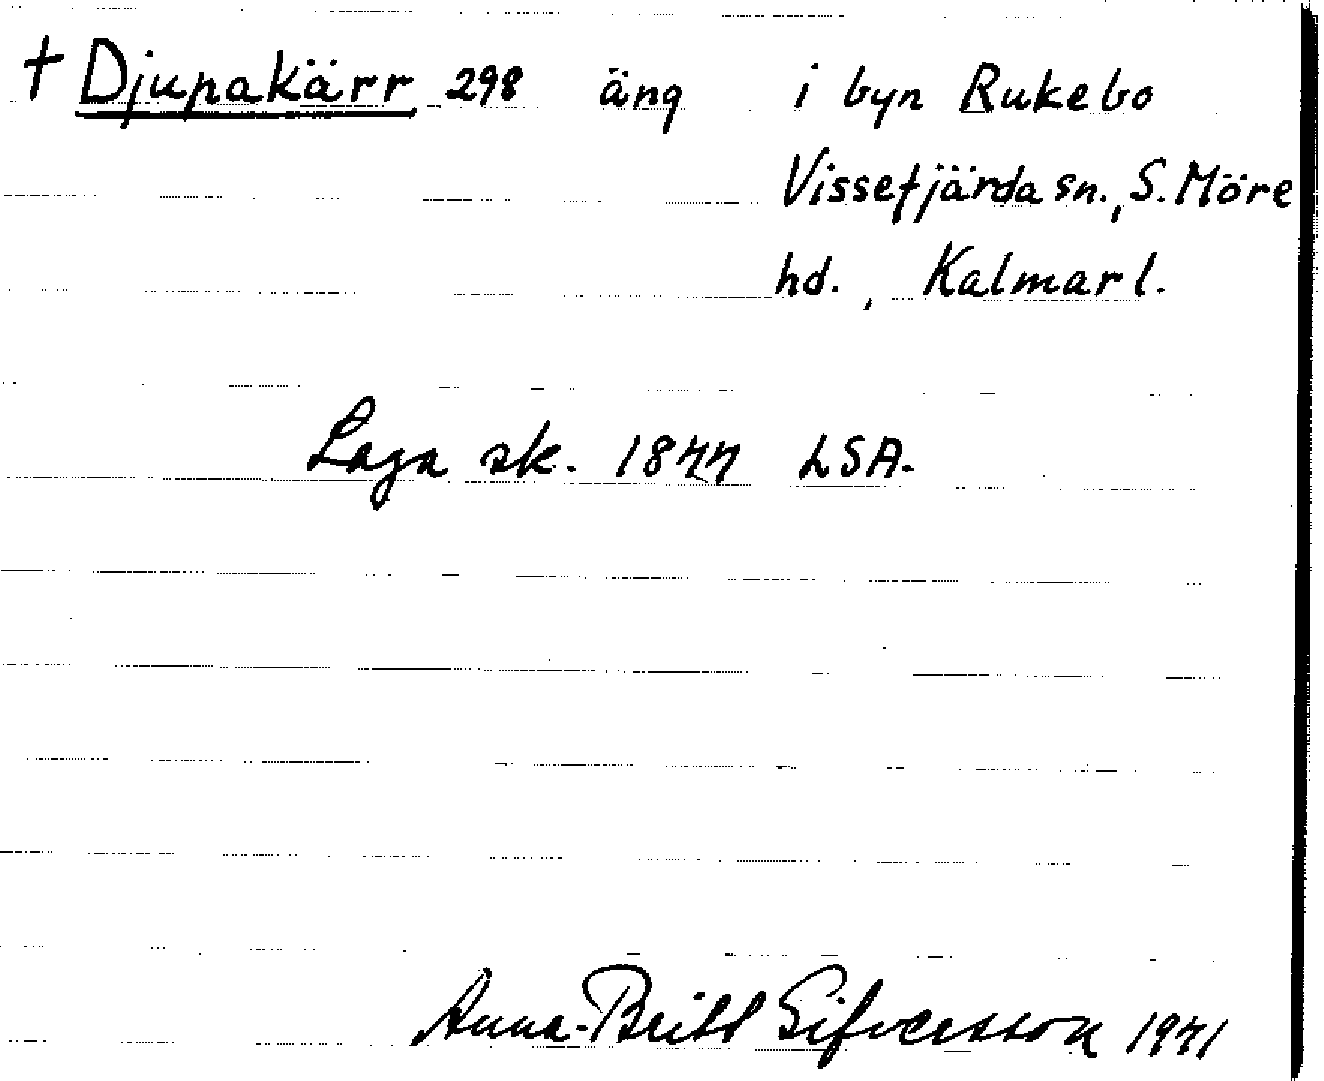 † Djupakärr 298 äng i byn Rukebo
Vissefjärda sn., S. Möre
hd., Kalmar l.
Laga sk. 1844 LSA.
Anna-Britt Sifversson 1941